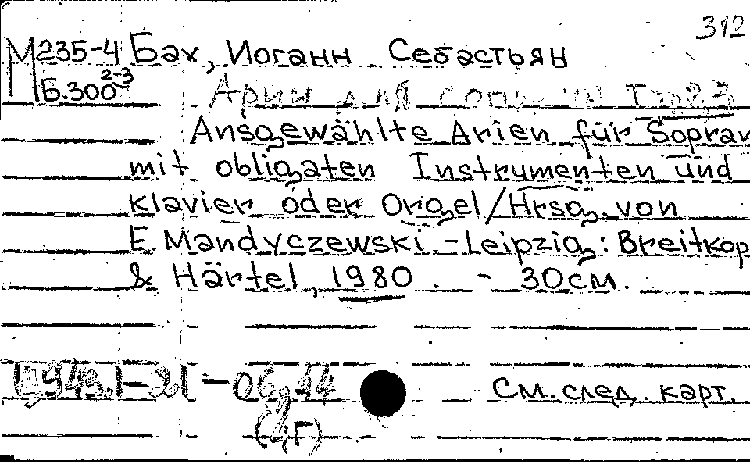 312
М235-4 Бах, Иоганн Себастьян
Б.300 2-3
Арии для
Ausgewählte Arien für Sopran
mit obligaten Instrumenten und
Klavier oder Orgel/Hrsg. von
E. Mandyczewski. - Leipzig: Breitkop
& Härtel, 1980. - 30см.
См. след. карт.